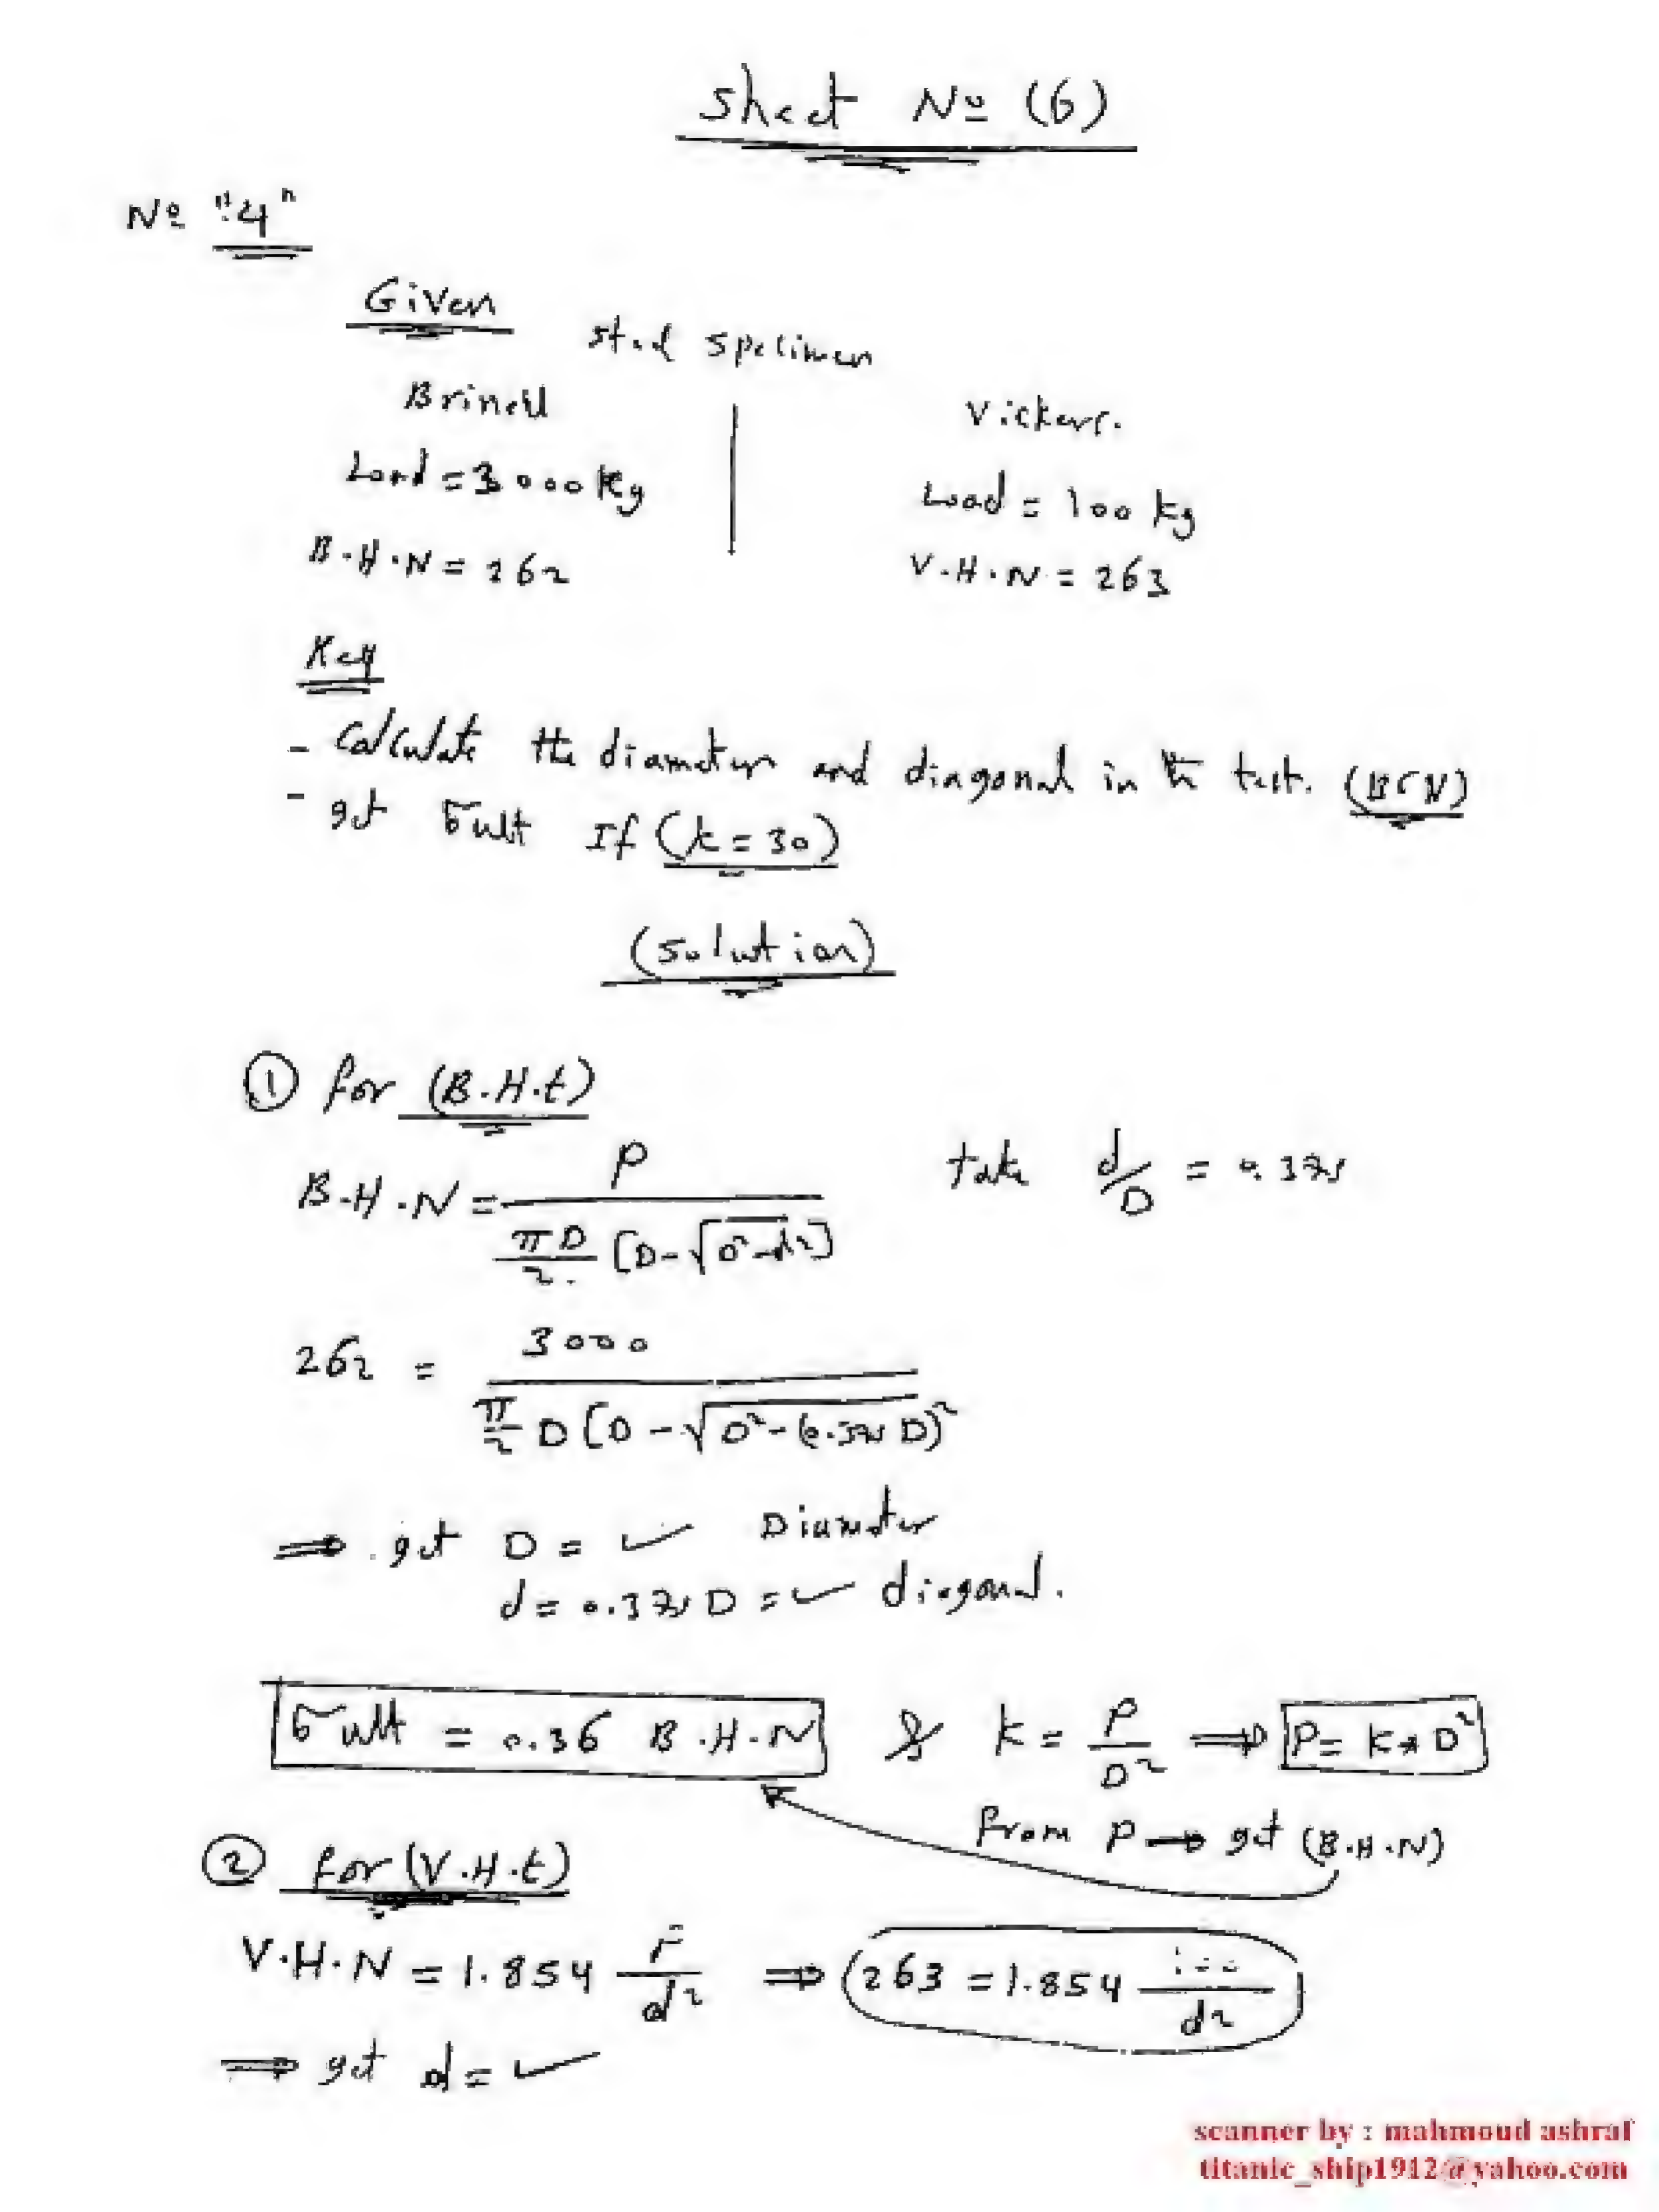 Sheet No (6)
No "4"
Given
Steel Specimen
Brinell
Vickers.
Load = 3000 Kg
Load = 100 kg
B.H.N = 262
V.H.N = 263
Key
- Calculate the diameter and diagonal in the test.
- get σult If (k = 30)
(Solution)
① for (B.H.t)
B.H.N = P / (πD/2 [D-√D²-d²]) take d/D = 0.375
262 = 3000 / (π/2 D [D-√D²-(0.375 D)²
⇒ get D = ✓ Diameter
d = 0.375 D = ✓ diagonal.
σult = 0.36 B.H.N & K = P/D² ⇒ P = K * D²
from P → get (B.H.N)
② for (V.H.t)
V.H.N = 1.854 P/d² ⇒ 263 = 1.854 100/d²
⇒ get d = ✓
scanner by : mahmoud ashraf
titanic_ship1912@yahoo.com